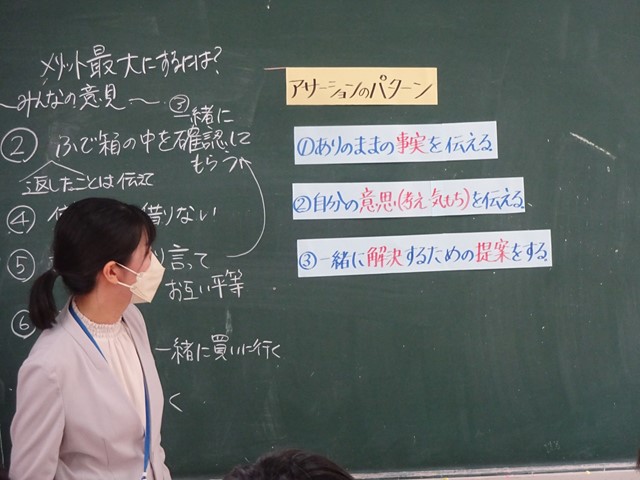 メリット最大にするには?
〜みんなの意見〜
③一緒に
② ふで箱の中を確認して
もらう
返したことは伝えて
④ 借りない
⑤ 言って
お互い平等
⑥
一緒に買いに行く
く
アサーションのパターン
①ありのままの事実を伝える
②自分の意思(考え 気もち)を伝える
③一緒に解決するための提案をする